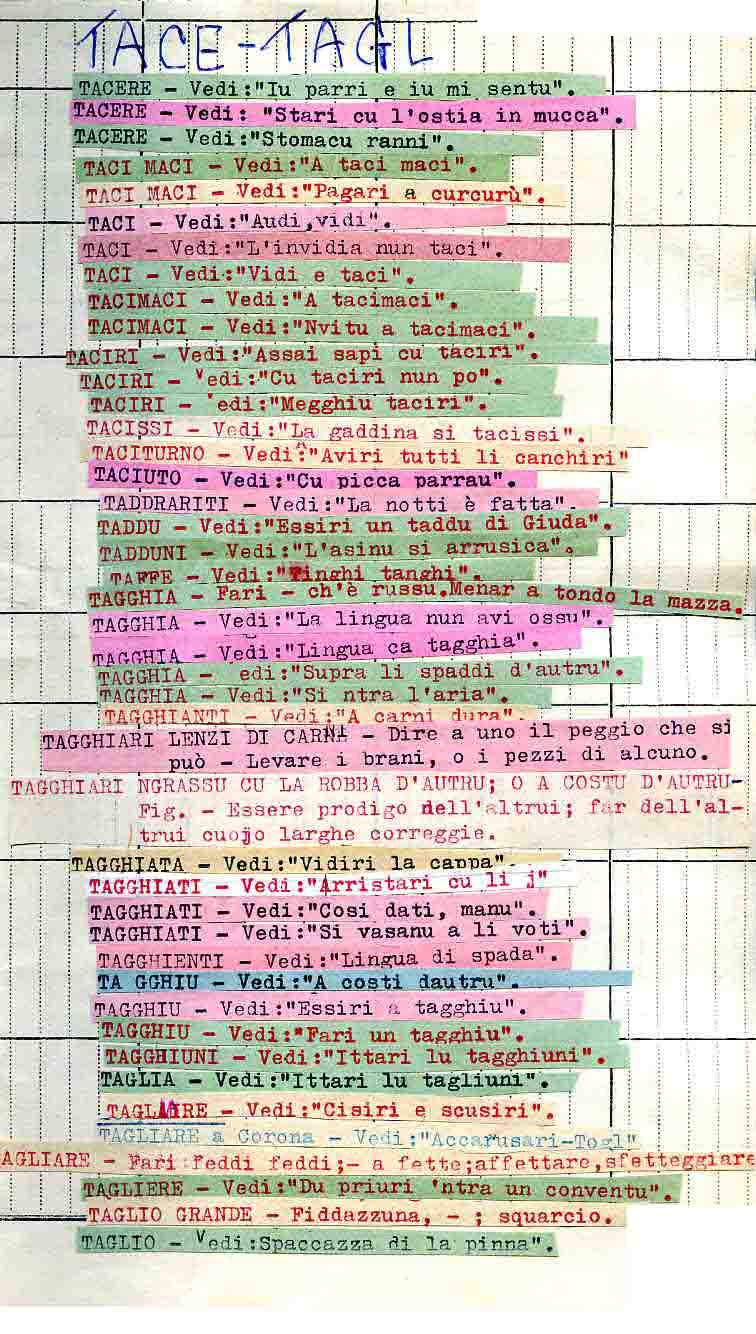 TACE-TAGL
TACERE - Vedi:"Iu parri e iu mi sentu".
TACERE - Vedi: "Stari cu l'ostia in mucca".
TACERE - Vedi:"Stomacu ranni".
TACI MACI - Vedi:"A taci maci".
TACI MACI - Vedi:"Pagari a curcurù".
TACI - Vedi:"Audi,vidi".
TACI - Vedi:"L'invidia nun taci".
TACI - Vedi:"Vidi e taci".
TACIMACI - Vedi:"A tacimaci".
TACIMACI - Vedi:"Nvitu a tacimaci".
TACIRI - Vedi:"Assai sapi cu taciri".
TACIRI - Vedi:"Cu taciri nun po".
TACIRI - edi:"Megghiu taciri".
TACISSI - Vedi:"La gaddina si tacissi".
TACITURNO - Vedi:"Aviri tutti li canchiri"
TACIUTO - Vedi:"Cu picca parrau".
TADDRARITI - Vedi:"La notti è fatta".
TADDU - Vedi:"Essiri un taddu di Giuda".
TADDUNI - Vedi:"L'asinu si arrusica".
TAFFE - Vedi:"Tinghi tanghi".
TAGGHIA - Fari - ch'è russu.Menar a tondo la mazza.
TAGGHIA - Vedi:"La lingua nun avi ossu".
TAGGHIA - Vedi:"Lingua ca tagghia".
TAGGHIA - edi:"Supra li spaddi d'autru".
TAGGHIA - Vedi:"Si ntra l'aria".
TAGGHIANTI - Vedi:"A carni dura".
TAGGHIARI LENZI DI CARNA - Dire a uno il peggio che si
può - Levare i brani, o i pezzi di alcuno.
TAGGHIARI NGRASSU CU LA ROBBA D'AUTRU; O A COSTU D'AUTRU-
Fig. - Essere prodigo dell'altrui; far dell'al-
trui cuojo larghe correggie.
TAGGHIATA - Vedi:"Vidiri la cappa".
TAGGHIATI - Vedi:"Arristari cu li j"
TAGGHIATI - Vedi:"Cosi dati, manu".
TAGGHIATI - Vedi:"Si vasanu a li voti".
TAGGHIENTI - Vedi:"Lingua di spada".
TA GGHIU - Vedi:"A costi dautru".
TAGGHIU - Vedi:"Essiri a tagghiu".
TAGGHIU - Vedi:"Fari un tagghiu".
TAGGHIUNI - Vedi:"Ittari lu tagghiuni".
TAGLIA - Vedi:"Ittari lu tagliuni".
TAGLIARE - Vedi:"Cisiri e scusiri".
TAGLIARE a Corona - Vedi:"Accarusari-Togl"
AGLIARE - Fari feddi feddi;- a fette;affettare,sfetteggiare
TAGLIERE - Vedi:"Du priuri 'ntra un conventu".
TAGLIO GRANDE - Fiddazzuna, - ; squarcio.
TAGLIO - Vedi:Spaccazza di la pinna".